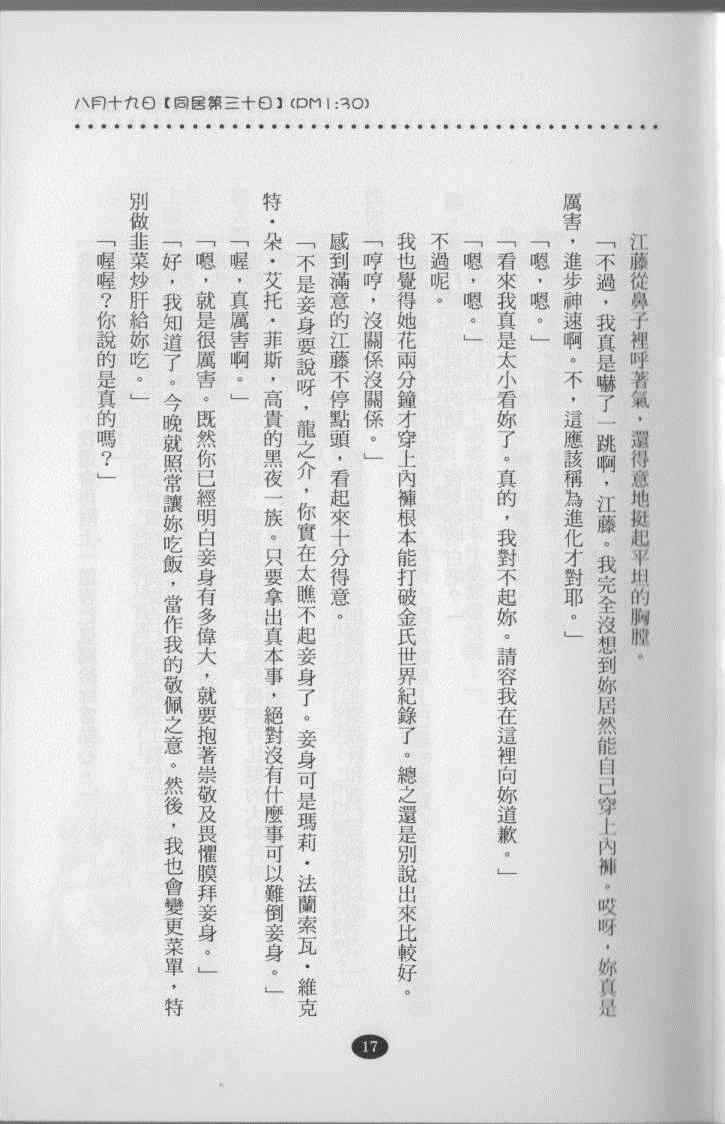 八月十九日【同居第三十日】(PM1:30)
江藤從鼻子裡呼著氣，還得意地挺起平坦的胸膛。
「不過，我真是嚇了一跳啊，江藤。我完全沒想到妳居然能自己穿上內褲。哎呀，妳真是
厲害，進步神速啊。不，這應該稱為進化才對耶。」
「嗯，嗯。」
「看來我真是太小看妳了。真的，我對不起妳。請容我在這裡向妳道歉。」
「嗯，嗯。」
不過呢。
我也覺得她花兩分鐘才穿上內褲根本能打破金氏世界紀錄了。總之還是別說出來比較好。
「哼哼，沒關係沒關係。」
感到滿意的江藤不停點頭，看起來十分得意。
「不是妾身要說呀，龍之介，你實在太瞧不起妾身了。妾身可是瑪莉・法蘭索瓦・維克
特・朵・艾托・菲斯，高貴的黑夜一族。只要拿出真本事，絕對沒有什麼事可以難倒妾身。」
「喔，真厲害啊。」
「嗯，就是很厲害。既然你已經明白妾身有多偉大，就要抱著崇敬及畏懼膜拜妾身。」
「好，我知道了。今晚就照常讓妳吃飯，當作我的敬佩之意。然後，我也會變更菜單，特
別做韭菜炒肝給妳吃。」
「喔喔？你說的是真的嗎？」
17